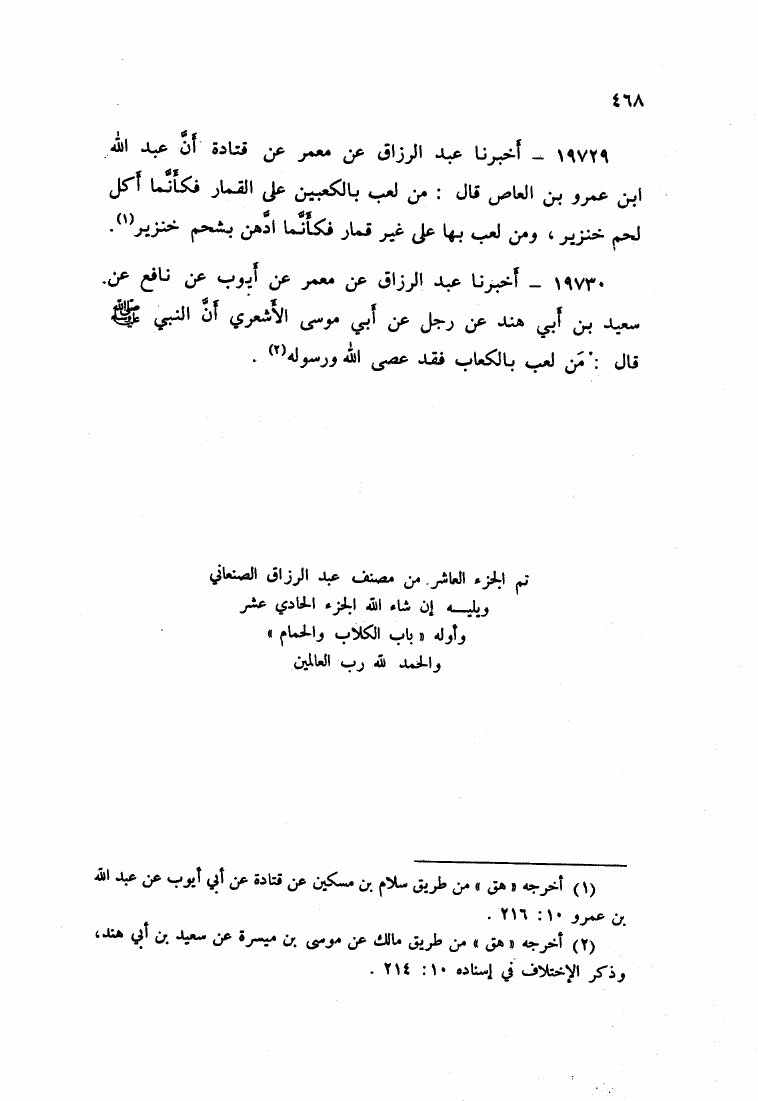 ٤٦٨
١٩٧٢٩ – أخبرنا عبد الرزاق عن معمر عن قتادة أنَّ عبد الله
ابن عمرو بن العاص قال : من لعب بالكعبين على القمار فكأَنَّما أكل
لحم خنزير ، ومن لعب بها على غير قمار فكأَنَّما ادَّهن بشحم خنزير(١).
١٩٧٣٠ – أخبرنا عبد الرزاق عن معمر عن أيوب عن نافع عن
سعيد بن أبي هند عن رجل عن أبي موسى الأشعري أنَّ النبي ﷺ
قال : مَن لعب بالكعاب فقد عصى الله ورسوله(٢) .
تم الجزء العاشر من مصنف عبد الرزاق الصنعاني
ويليـــه إن شاء الله الجزء الحادي عشر
وأوله « باب الكلاب والحمام »
والحمد لله رب العالمين
(١) أخرجه « هق » من طريق سلام بن مسكين عن قتادة عن أبي أيوب عن عبد الله
بن عمرو ١٠ : ٢١٦ .
(٢) أخرجه « هق » من طريق مالك عن موسى بن ميسرة عن سعيد بن أبي هند،
وذكر الإختلاف في إسناده ١٠ : ٢١٤ .